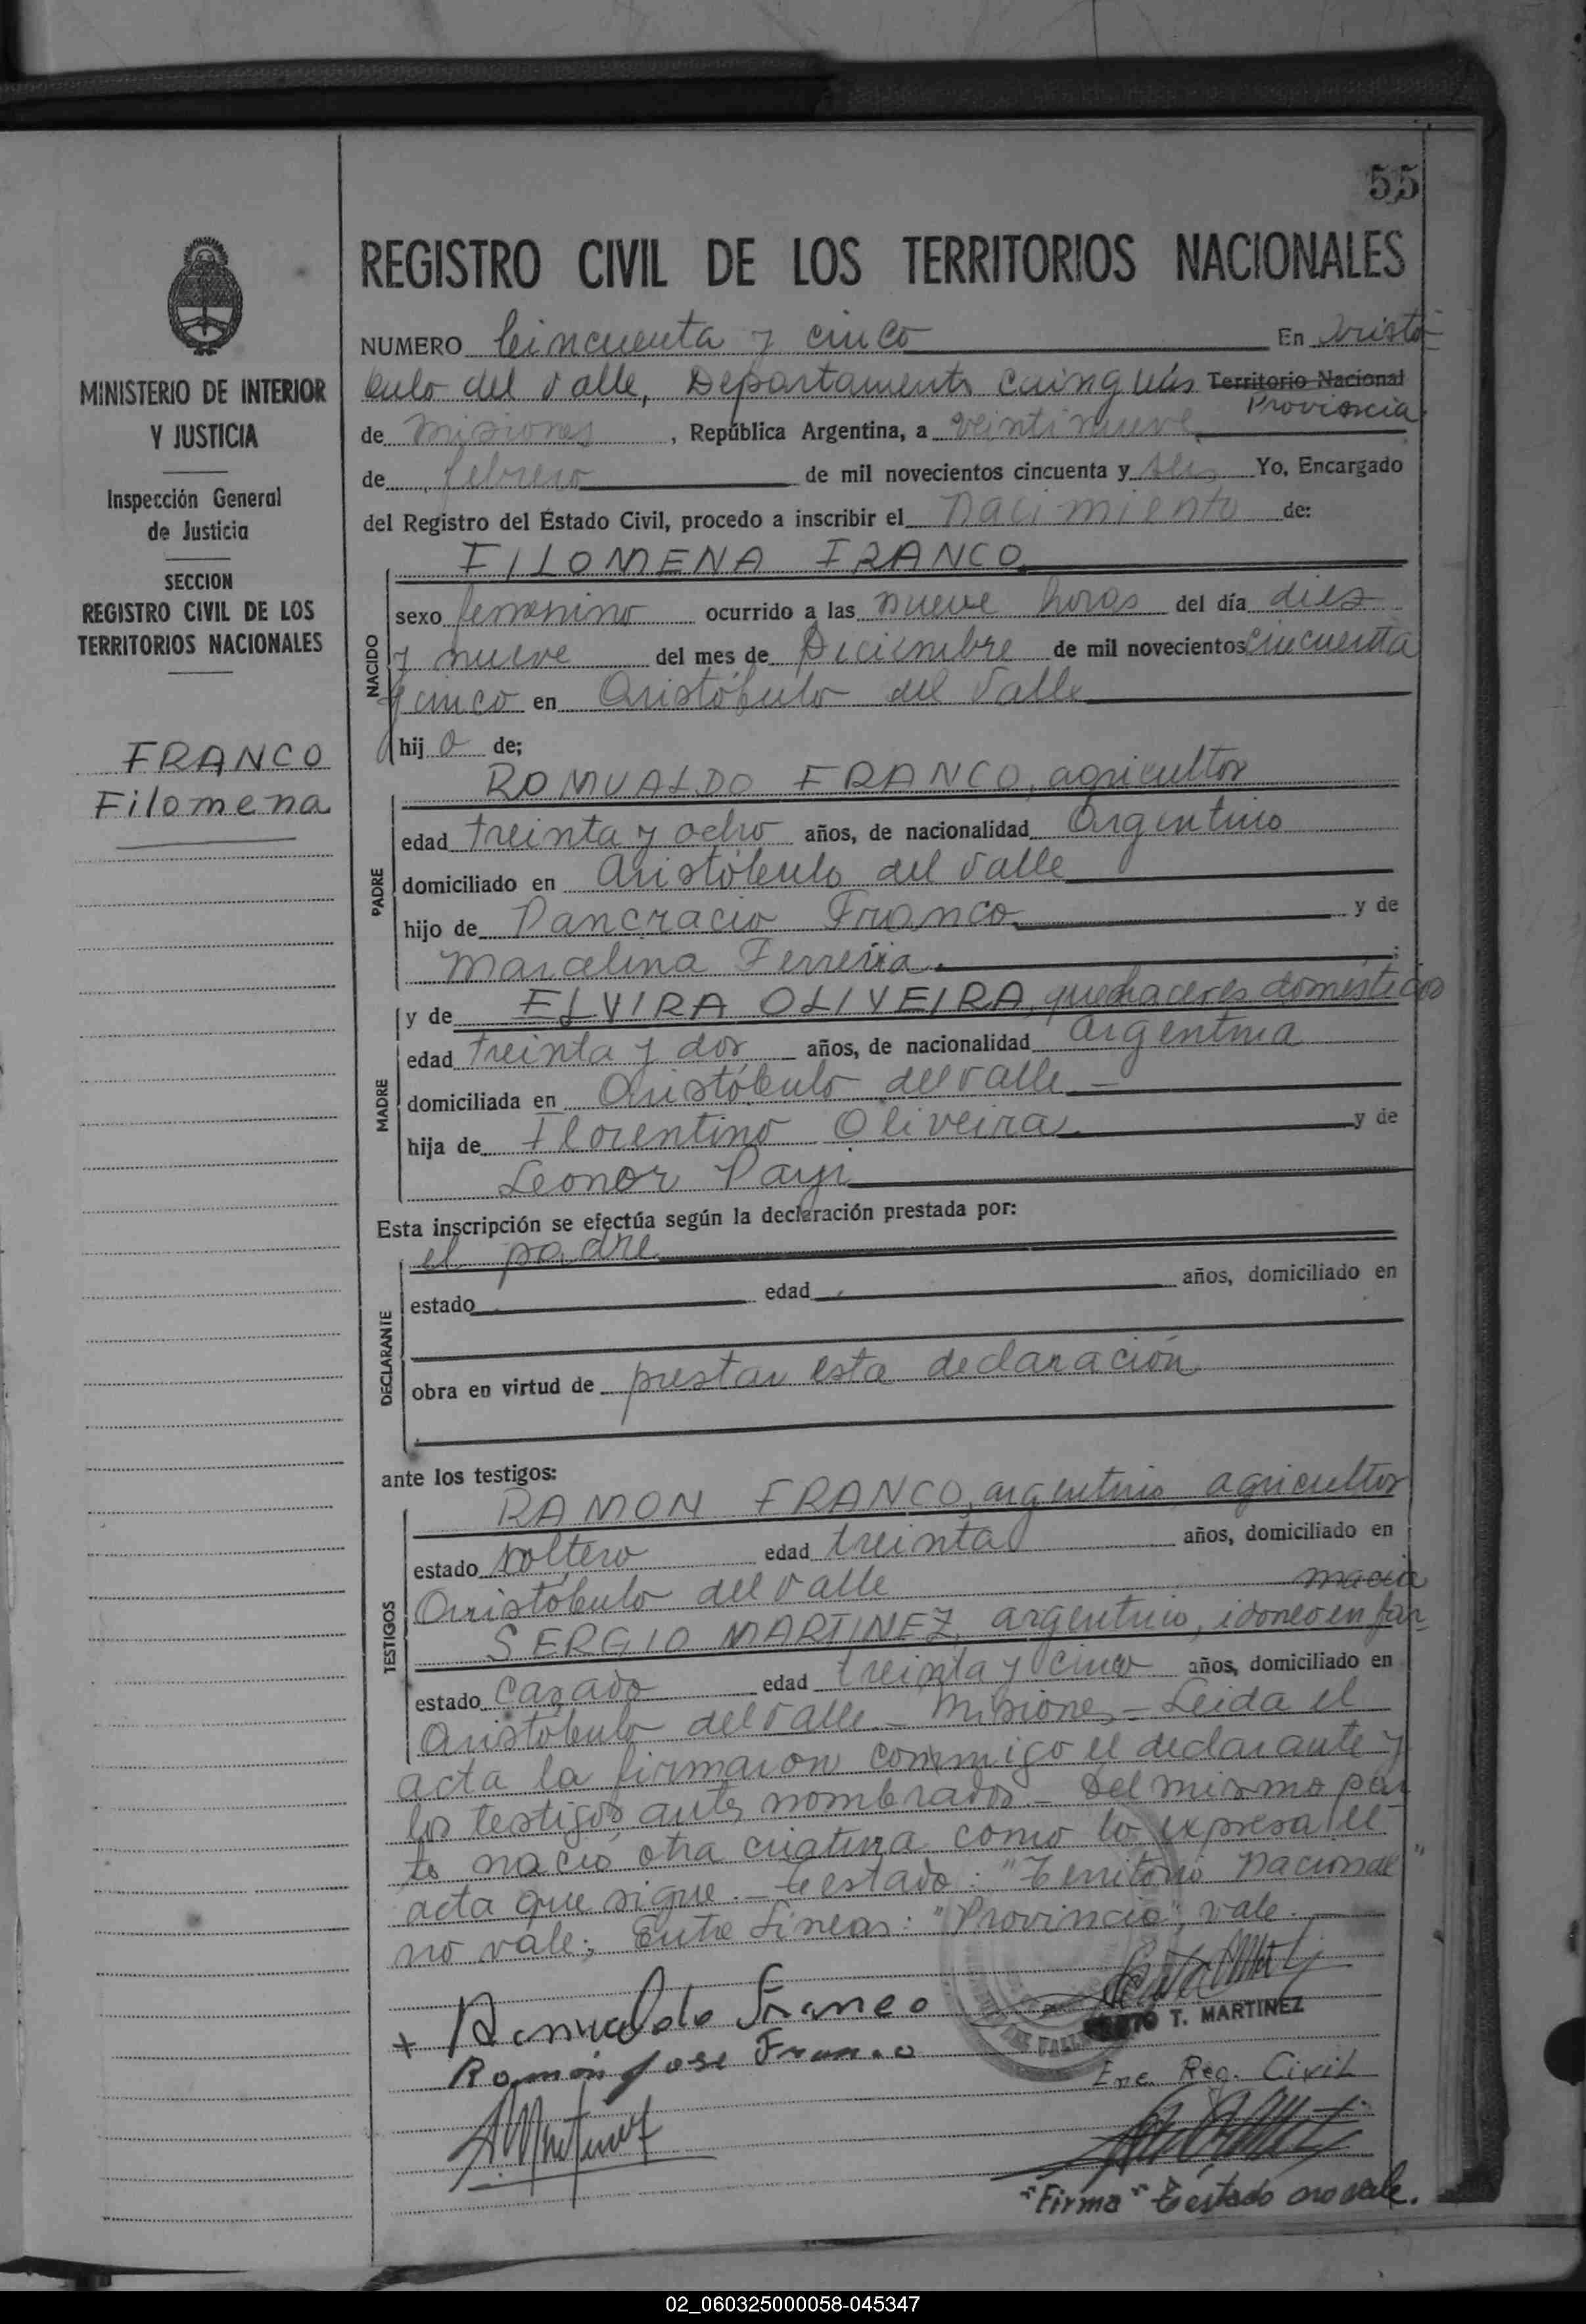 55
REGISTRO CIVIL DE LOS TERRITORIOS NACIONALES
MINISTERIO DE INTERIOR
Y JUSTICIA
Inspección General
de Justicia
SECCION
REGISTRO CIVIL DE LOS
TERRITORIOS NACIONALES
FRANCO
Filomena
NUMERO Cincuenta y cinco En Aristó-
bulo del Valle, Departamento Cainguás Territorio Nacional
Provincia
de Misiones, República Argentina, a veintinueve
de febrero de mil novecientos cincuenta y seis Yo, Encargado
del Registro del Estado Civil, procedo a inscribir el nacimiento de:
NACIDO
FILOMENA FRANCO
sexo femenino ocurrido a las nueve horas del día diez
y nueve del mes de Diciembre de mil novecientos cincuenta
y cinco en Aristóbulo del Valle
hij a de;
PADRE
ROMUALDO FRANCO, agricultor
edad treinta y ocho años, de nacionalidad Argentino
domiciliado en Aristóbulo del Valle
hijo de Pancracio Franco y de
Marcelina Ferreira
MADRE
y de ELVIRA OLIVEIRA, quehaceres domésticos
edad treinta y dos años, de nacionalidad argentina
domiciliada en Aristóbulo del Valle
hija de Florentino Oliveira y de
Leonor
Esta inscripción se efectúa según la declaración prestada por:
DECLARANTE
el padre
estado edad años, domiciliado en
obra en virtud de prestar esta declaración
ante los testigos:
TESTIGOS
RAMON FRANCO, argentino agricultor
estado soltero edad treinta años, domiciliado en
Aristóbulo del Valle macia
SERGIO MARTINEZ, argentino, idoneo en far-
estado casado edad treinta y cinco años, domiciliado en
Aristóbulo del Valle - Misiones - Leida el
acta la firmaron conmigo el declarante y
los testigos antes nombrados. - Del mismo par
to nació otra criatura como lo expresa el
acta que sigue. - Testado: "Territorio Nacional"
no vale; Entre Lineas: "Provincia", vale.
Romualdo Franco
Ramón Jose Franco
T. MARTINEZ
Enc. Reg. Civil
"Firma" Testado no vale.
02_060325000058-045347